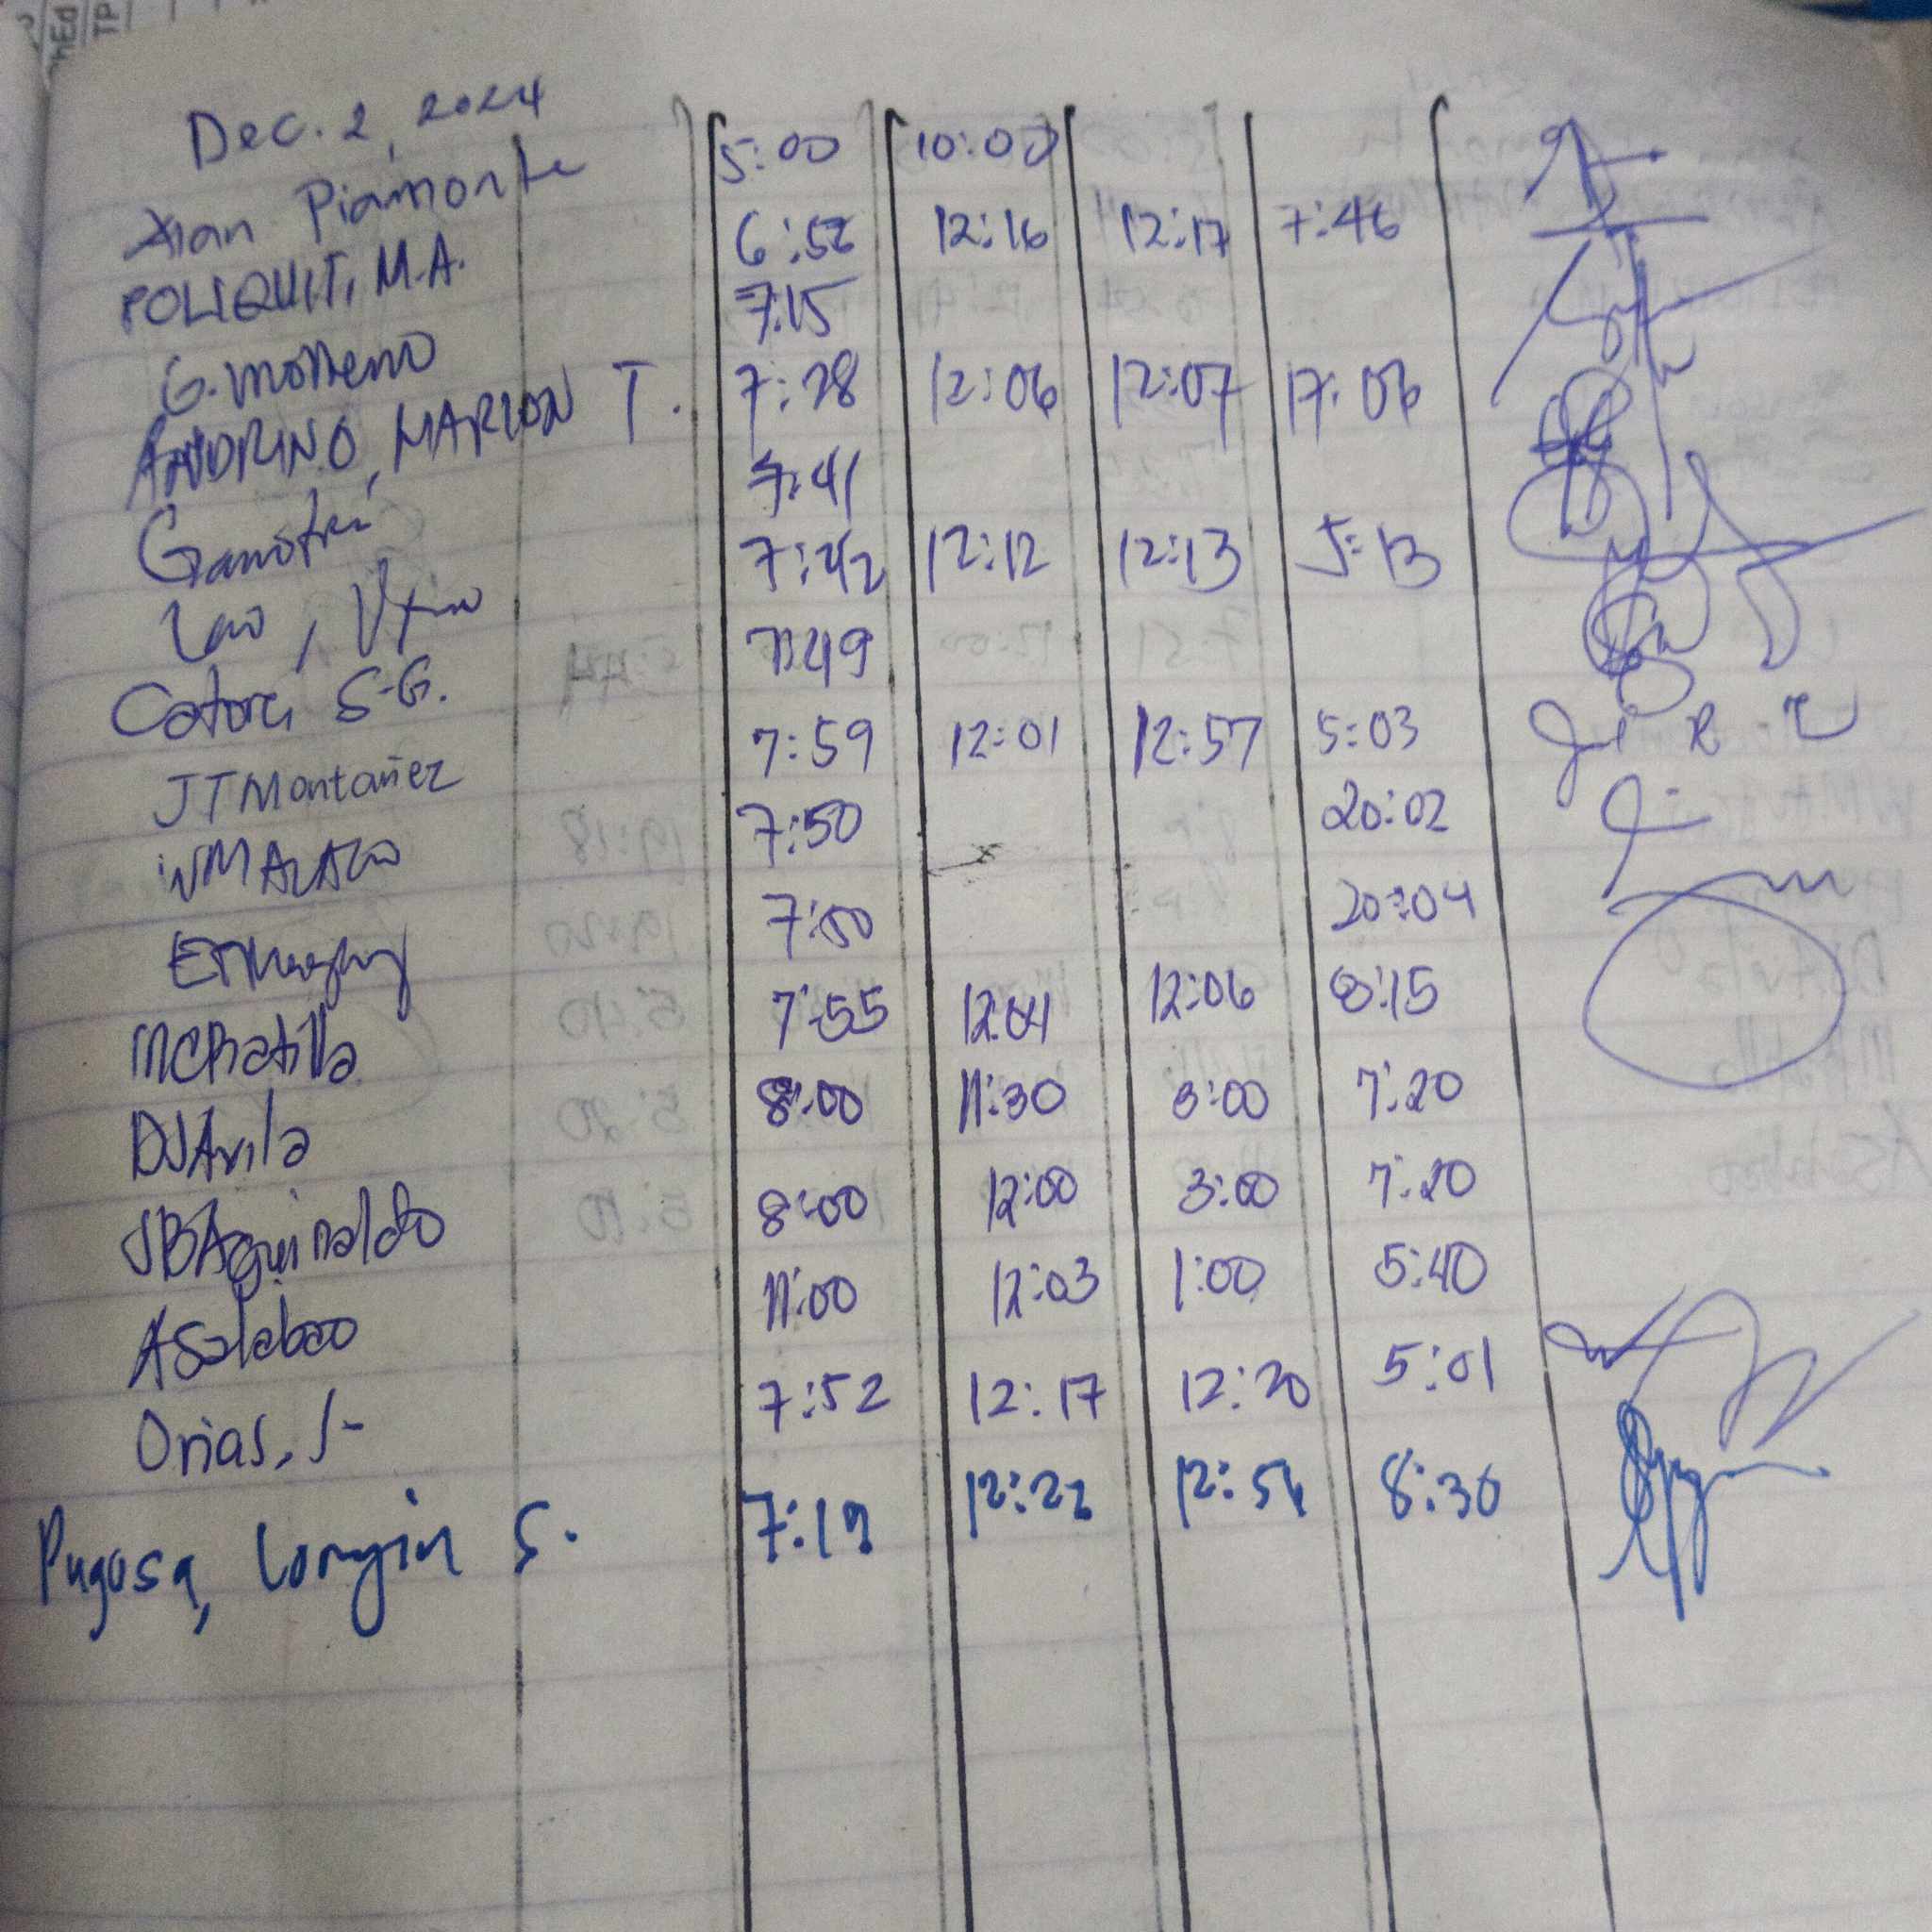 Dec. 2, 2024
Xian Piamonte 5:00 10:00
POLIQUIT, M.A. 6:58 12:16 12:17 7:46
G. Moreno 7:15
ANDRINO, MARLON T. 7:28 12:06 12:07 17:06
7:41
Lao, 7:42 12:12 12:13 5:13
S.G. 7:49
JTMontañez 7:59 12:01 12:57 5:03
7:50 20:02
7:50 20:04
MCRatilla 7:55 12:04 12:06 8:15
DJAvila 8:00 11:30 3:00 7:20
JBAguinaldo 8:00 12:00 3:00 7:20
ASalabao 11:00 12:03 1:00 5:40
Orias, J- 7:52 12:17 12:20 5:01
Pugosa, Longin S. 7:19 12:22 12:54 8:30